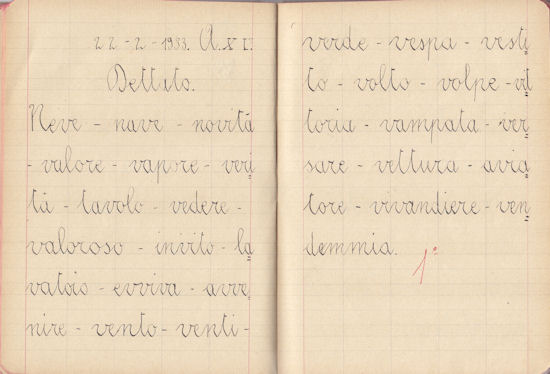 22-2-1933. A. XI.
Dettato.
Neve - nave - novità
- valore - vapore - veri
tà - tavolo - vedere -
valoroso - invito - la
vatoio - evviva - avve
nire - vento - venti -
verde - vespa - vesti
to - volto - volpe - vit
toria - vampata - ver
sare - vettura - avia
tore - vivandiere - ven
demmia.
1°